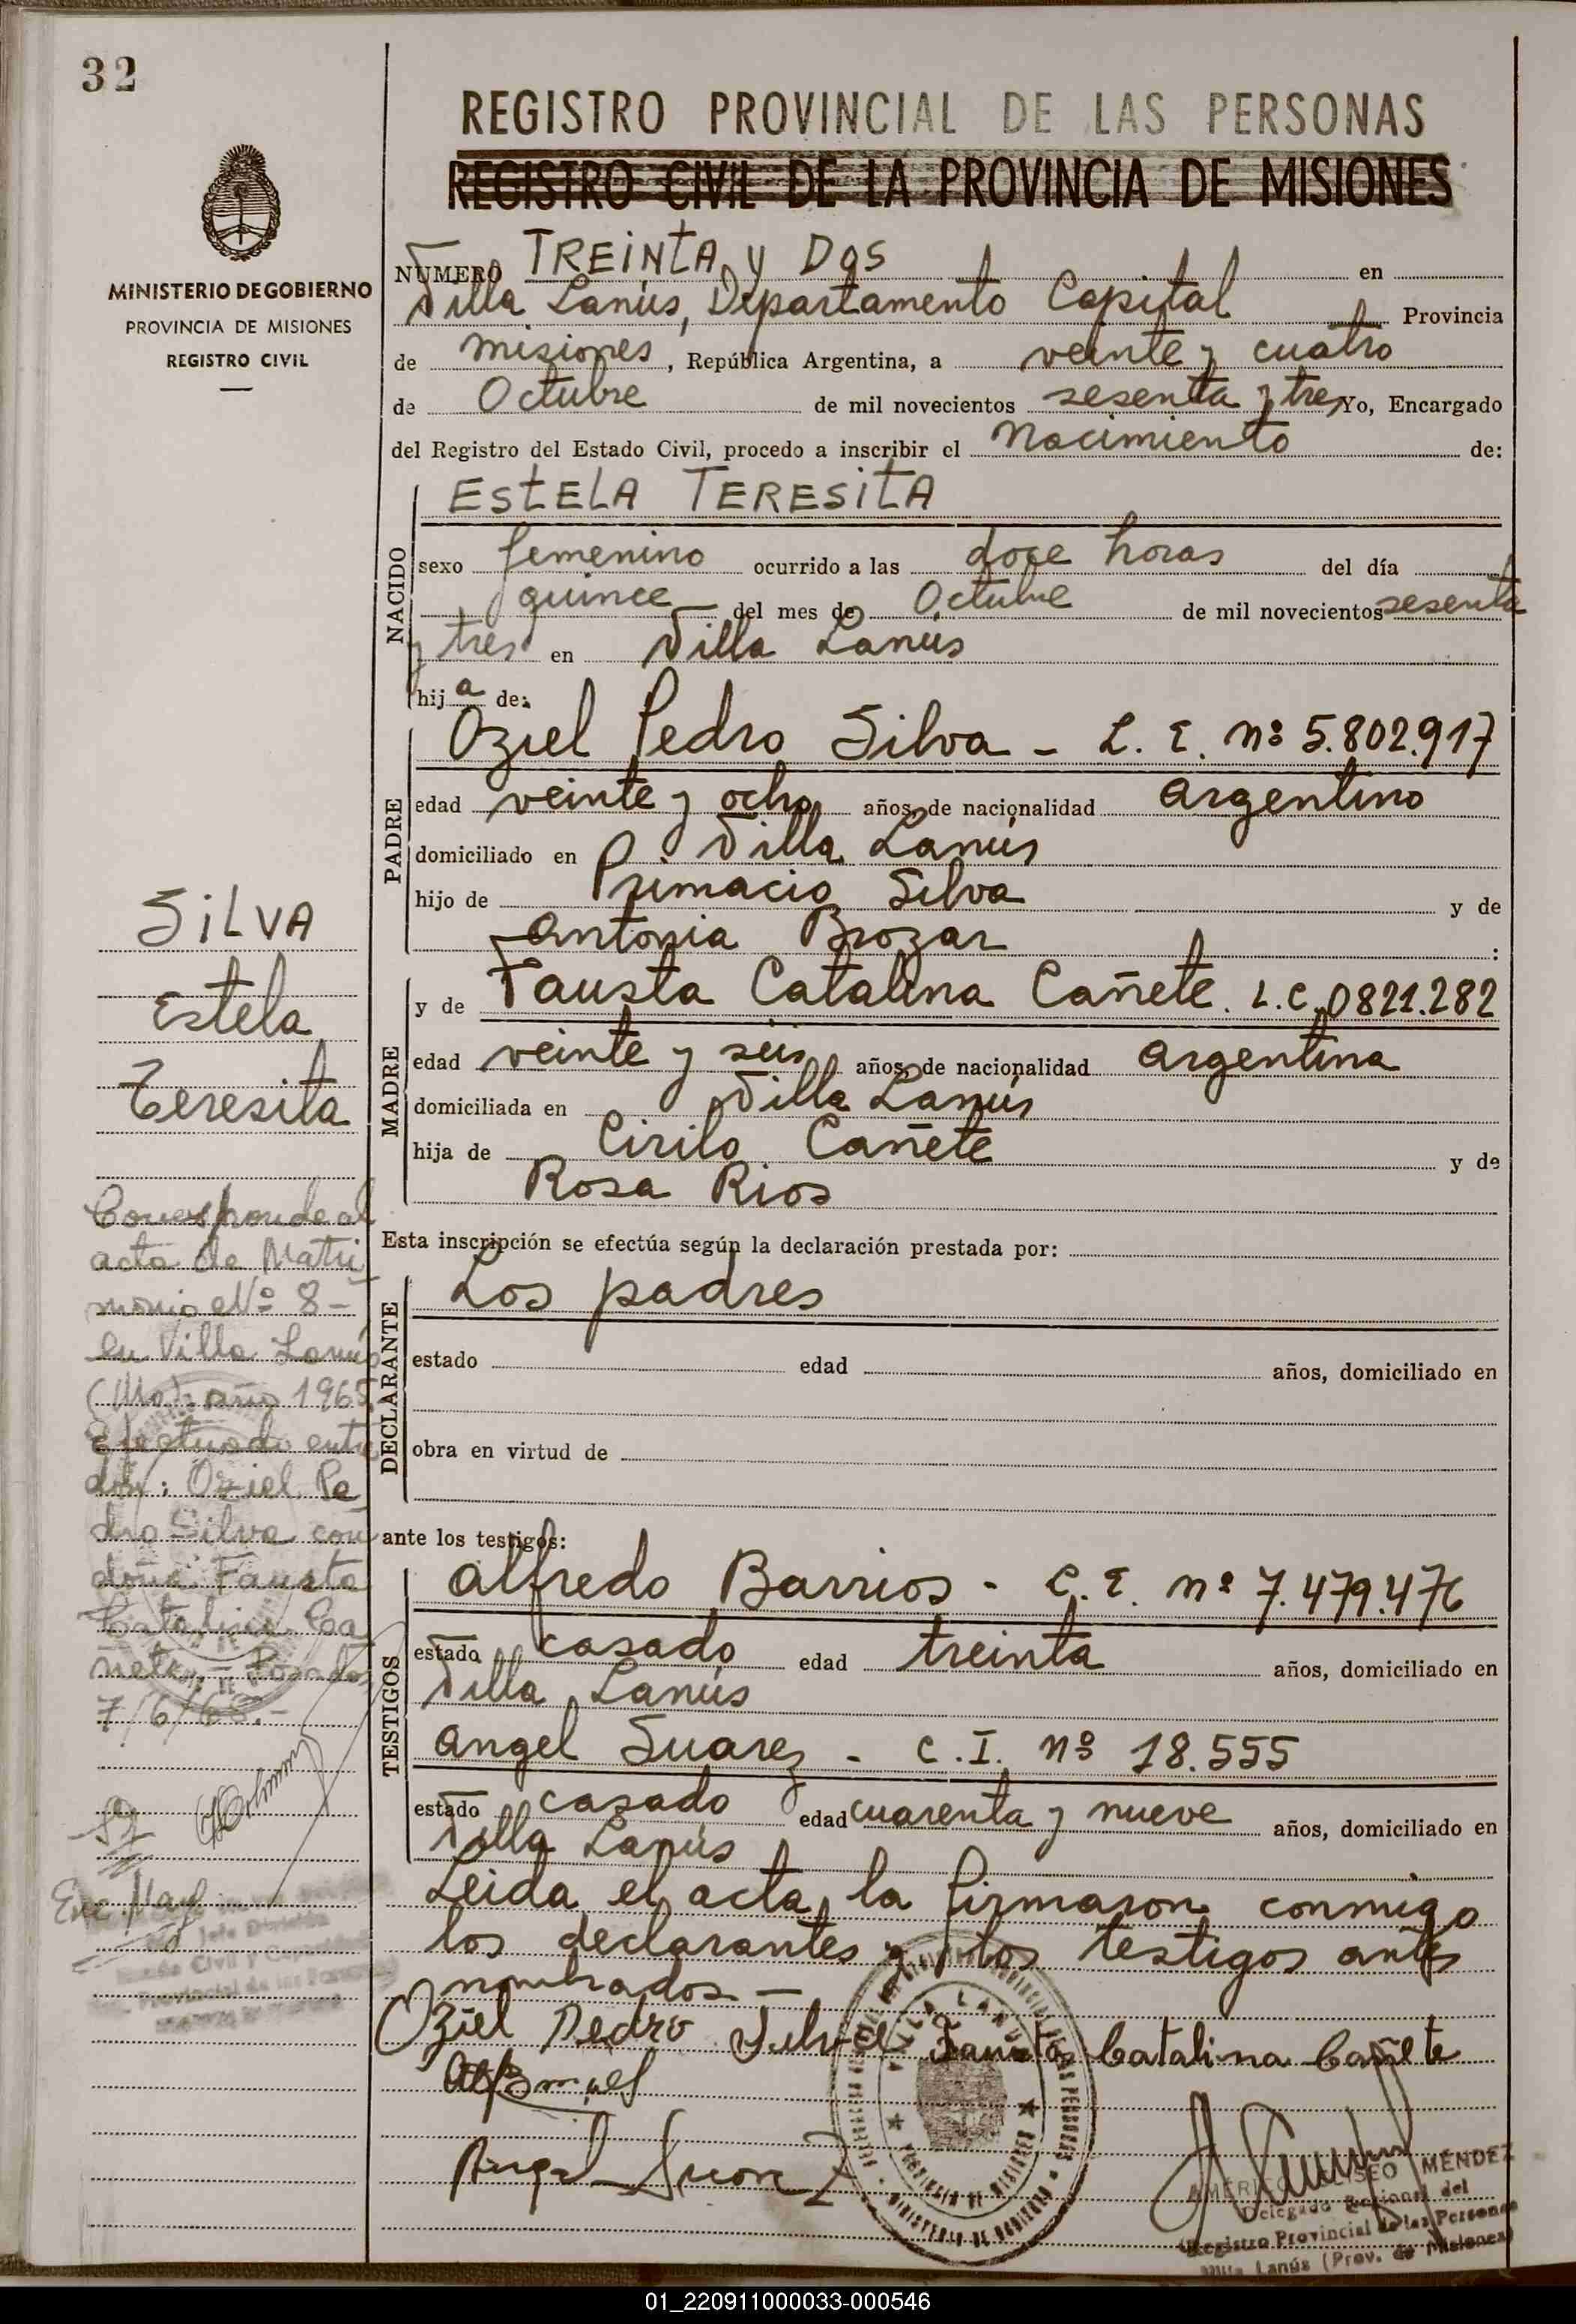 32
REGISTRO PROVINCIAL DE LAS PERSONAS
REGISTRO CIVIL DE LA PROVINCIA DE MISIONES
MINISTERIO DE GOBIERNO
PROVINCIA DE MISIONES
REGISTRO CIVIL
NUMERO TREINTA y DOS en
Villa Lanús, Departamento Capital Provincia
de Misiones, República Argentina, a veinte y cuatro
de Octubre de mil novecientos sesenta y tres Yo, Encargado
del Registro del Estado Civil, procedo a inscribir el Nacimiento de:
NACIDO
ESTELA TERESITA
sexo femenino ocurrido a las doce horas del día
quince del mes de Octubre de mil novecientos sesenta
y tres en Villa Lanús
hija de:
PADRE
Oziel Pedro Silva - L. E. Nº 5.802.917
edad veinte y ocho años, de nacionalidad Argentino
domiciliado en Villa Lanús
hijo de Primacio Silva y de
Antonia Brozar :
MADRE
y de Fausta Catalina Cañete. L.C. 0821.282
edad veinte y seis años, de nacionalidad Argentina
domiciliada en Villa Lanús
hija de Cirilo Cañete y de
Rosa Rios
Esta inscripción se efectúa según la declaración prestada por:
DECLARANTE
Los padres
estado edad años, domiciliado en
obra en virtud de
ante los testigos:
TESTIGOS
Alfredo Barrios - C. I. Nº 7.479.476
estado casado edad treinta años, domiciliado en
Villa Lanús
Angel Suarez - C. I. Nº 18.555
estado casado edad cuarenta y nueve años, domiciliado en
Villa Lanús
Leida el acta, la firmaron conmigo
los declarantes y los testigos antes
nombrados -
Oziel Pedro Silva Fausta Catalina Cañete
Angel Suarez
SILVA
Estela
Teresita
Corresponde al
acta de Matri
monio Nº 8 -
en Villa Lanús
año 1965
Efectuado entre
don: Oziel Pe
dro Silva con
doña Fausta
Catalina Ca
ñete. - Posadas
7/6/
Jefe División
VILLA LANUS
PROVINCIA DE MISIONES
MINISTERIO DE GOBIERNO
MÉNDEZ
Delegado Regional del
Registro Provincial de las Personas
Villa Lanús (Prov. de Misiones)
01_220911000033-000546